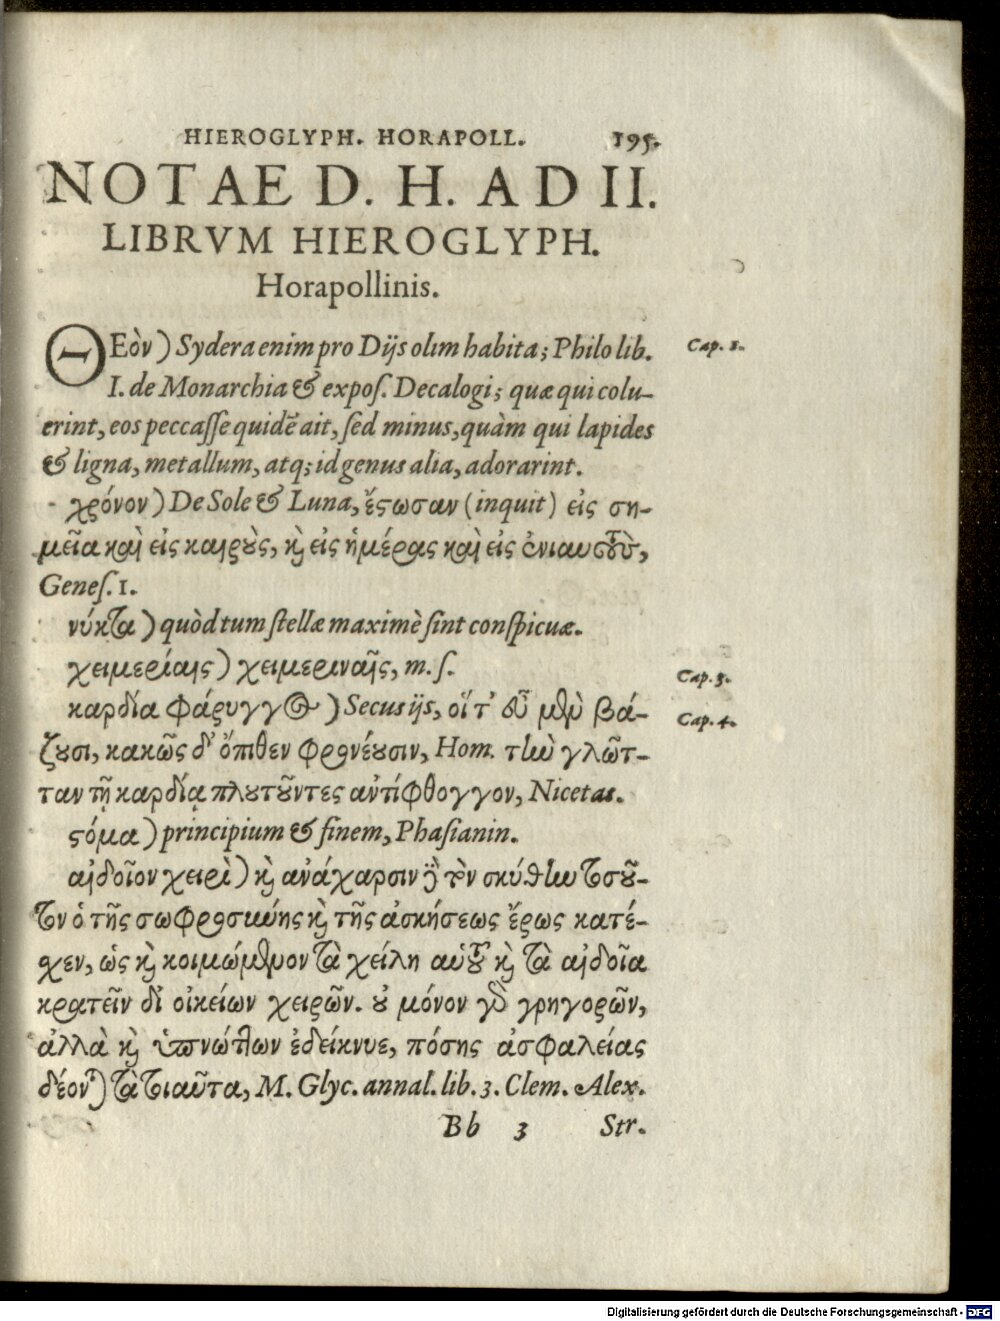 HIEROGLYPH. HORAPOLL. 195.
NOTAE D. H. AD II.
LIBRVM HIEROGLYPH.
Horapollinis.
ΘΕὸν) Sydera enim pro Dijs olim habita; Philo lib. Cap. 1.
I. de Monarchia & expos. Decalogi; quæ qui colu-
erint, eos peccasse quidē ait, sed minus, quàm qui lapides
& ligna, metallum, atq; id genus alia, adorarint.
χρόνον) De Sole & Luna, ἔστωσαν (inquit) εἰς ση-
μεῖα καὶ εἰς καιροὺς, κ̀ εἰς ἡμέρας καὶ εἰς ἐνιαυτοὺς,
Genes. 1.
νύκτα) quòd tum stellæ maximè sint conspicuæ.
χειμερίαις) χειμεριναῖς, m. s. Cap. 3.
καρδία φάρυγγος) Secus ijs, οἵ τ' εὖ μὲν βά- Cap. 4.
ζουσι, κακῶς δ' ὄπιθεν φρονέουσιν, Hom. τὴν γλῶτ-
ταν τῇ καρδίᾳ πλουτοῦντες αὐτίφθογγον, Nicetas.
στόμα) principium & finem, Phasianin.
αἰδοῖον χειρὶ) κ̀ ἀνάχαρσιν ϳ̀ τὸν σκύθην τοσοῦ-
τον ὁ τῆς σωφροσύνης κ̀ τῆς ἀσκήσεως ἔρως κατέ-
σχεν, ὡς κ̀ κοιμώμενον τὰ χείλη αὐτοῦ κ̀ τὰ αἰδοῖα
κρατεῖν δἰ οἰκείων χειρῶν. οὐ μόνον γὰρ γρηγορῶν,
ἀλλὰ κ̀ ὑπνώττων ἐδείκνυε, πόσης ἀσφαλείας
δέονται τὰ τοιαῦτα, M. Glyc. annal. lib. 3. Clem. Alex.
Bb 3 Str.
Digitalisierung gefördert durch die Deutsche Forschungsgemeinschaft - DFG